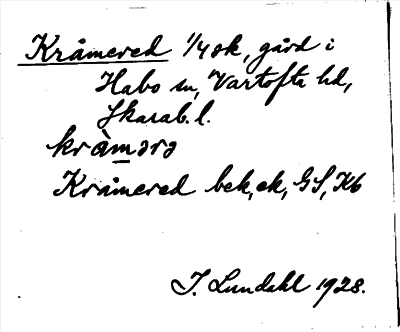 Kråmered 1/4 sk, gård i
Habo sn, Vartofta hd,
Skarab. l.
kràmərə
Kråmered bek, ek, GS, Kb
I. Lundahl 1928.